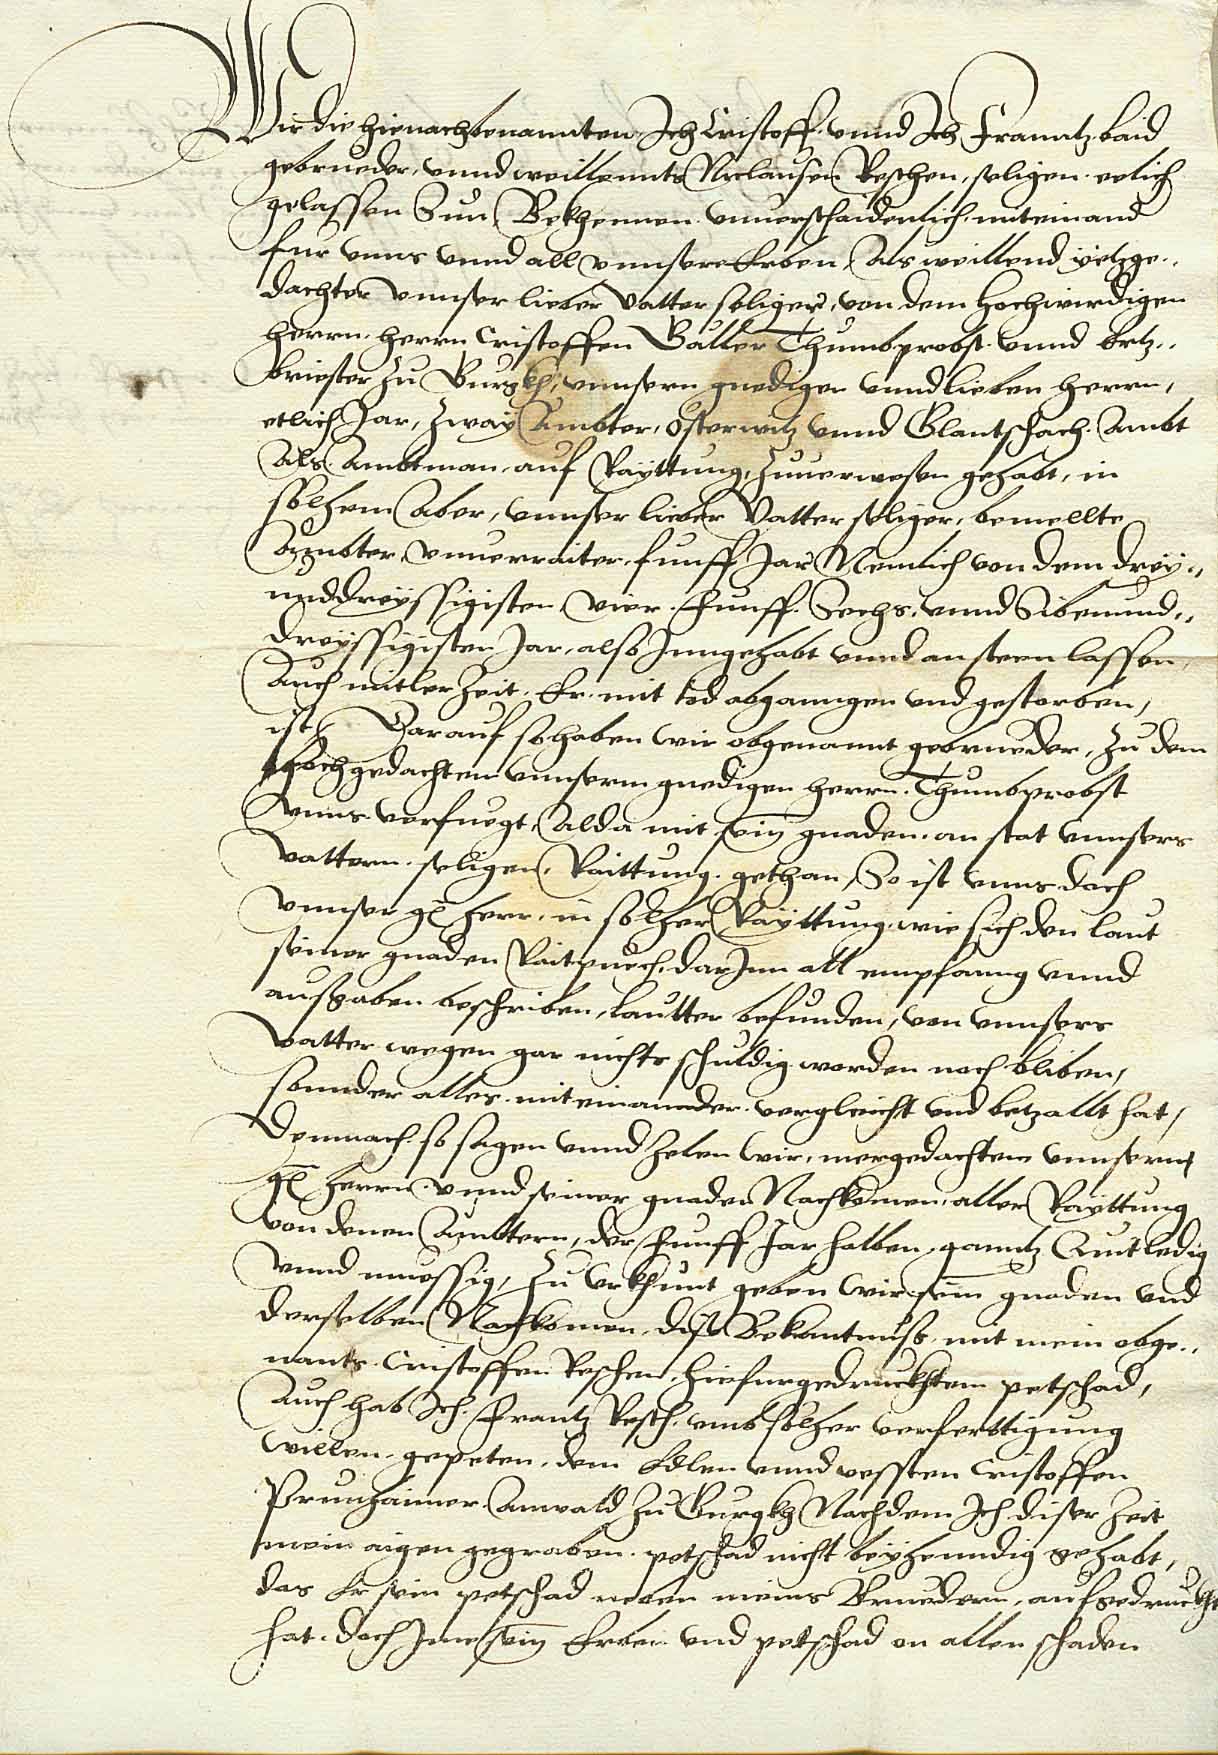 Wir die hienachbenannten Ich Cristoff vnnd Ich Franntz baid
gebrueder, vnnd weillennts Niclausen Reschen, seligen eelich
gelassen Sun, Bekhennen vnuerschaidenlich miteinand
fur vnns vnnd all vnnsere Erben, Als weillend yetzge„
dachter vnnser lieber Vatter seliger, von dem Hochwirdigen
herrn, herrn Cristoffen Galler Thumbprobst vnnd Ertz„
briester zu Gurgkh, vnnsern gnedigen vnnd lieben herrn,
etlich Jar, zway Ambter, Osterwitz vnnd Glantschach Ambt
Als Ambtman, auf Rayttung, zuuerwesen gehabt, in
sölhem aber, vnnser lieber Vatter seliger, bemellte
Ambter, vnuerraiter funff Jar Nemlich von dem drey„
unddreyssigisten, vier, Funff, Sechs, vnnd Sibenund„
dreyssigisten Jar, also Inngehabt vnnd ansteen lassen,
Auch mitler Zeit, Er mit tod abganngen vnd gestorben,
ist, Darauf so haben wir obgenannt gebrueder, zu dem
hochgedachten vnnserm gnedigen herrn Thumbprobst
vnns verfuegt, Alda mit sein gnaden, an stat vnnsers
Vattern seligen, Raittung gethan, So ist vnns doch
vnnser g herr, in solher Rayttung, wie sich den laut
seiner gnaden Raitpuech, darInn all empfanng vnnd
ausgaben beschriben, lautter befunden, von vnnsers
Vatter wegen gar nichts schuldig worden noch bliben,
sonnder alles miteinannder vergleicht vnd betzallt hat,
Demnach so sagen vnnd zelen wir, mergedachtem vnnserm
g herrn vnnd seiner gnaden Nachkomen, aller Rayttung
von denen Ambtern, der Funff Jar halben, ganntz Quit ledig
vnnd muessig, Zu Vrkhunt geben wir sein gnaden vnd
derselben Nachkomen, dise Bekantnuß, mit mein obge„
nants Cristoffen Reschen, hiefurgedruckhtem petschad,
Auch hab Ich Frantz Resch, vmb solher verferttigung
willen, gepeten, dem Edlen vnnd vessten Cristoffen
Prunhaimer Anwald zu Gurgkh Nachdem Ich diser Zeit
mein aigen gegraben petschad nicht beyhenndig gehabt,
das Er sein petschad neben meins Bruedern, aufgedruckht
hat, doch Ime sein Erben vnd petschad on allen schaden